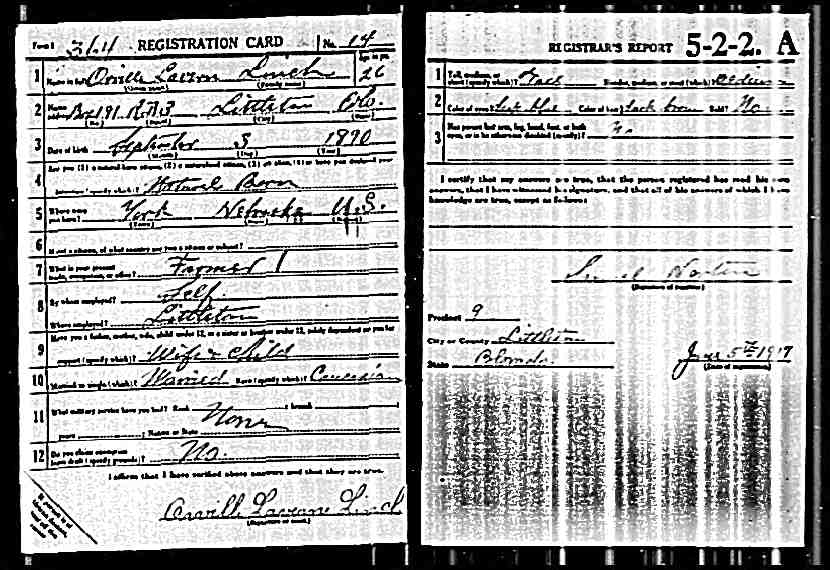 Form 1 364 REGISTRATION CARD No. 14
1 Name in full Orville Lavern Linch Age in yrs. 26
(Given name) (Family name)
2 Home address Box 191 R.R.3 Littleton Colo.
(No.) (Street) (City) (State)
3 Date of birth September 3 1890
(Month) (Day) (Year)
4 Are you (1) a natural born citizen, (2) a naturalized citizen, (3) an alien, (4) or have you declared your
intention (specify which)? Natural Born
5 Where were you born? York Nebraska U.S.
(Town) (State) (Nation)
6 If not a citizen, of what country are you a citizen or subject?
7 What is your present trade, occupation, or office? Farmer 1
8 By whom employed? Self
Where employed? Littleton
9 Have you a father, mother, wife, child under 12, or a sister or brother under 12, solely dependent on you for
support (specify which)? Wife & Child
10 Married or single (which)? Married Race (specify which)? Caucasian
11 What military service have you had? Rank None ; branch
years ; Nation or State
12 Do you claim exemption from draft (specify grounds)? No.
I affirm that I have verified above answers and that they are true.
Orville Laverne Linch
(Signature or mark)
If person is of African descent, tear off this corner
REGISTRAR'S REPORT 5-2-2. A
1 Tall, medium, or short (specify which)? Tall Slender, medium, or stout (which)? Medium
2 Color of eyes Color of hair Bald? No
3 Has person lost arm, leg, hand, foot, or both eyes, or is he otherwise disabled (specify)? No
I certify that my answers are true, that the person registered has read his own
answers, that I have witnessed his signature, and that all of his answers of which I have
knowledge are true, except as follows:
(Signature of registrar)
Precinct 9
City or County Littleton
State June 5th 1917
(Date of registration)